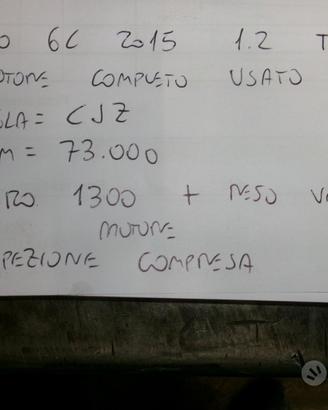 O 6C 2015 1.2 T
OTORE COMPLETO USATO
GLA = CJZ
M = 73.000
RO 1300 + RESO V
MOTORE
PEZIONE COMPRESA